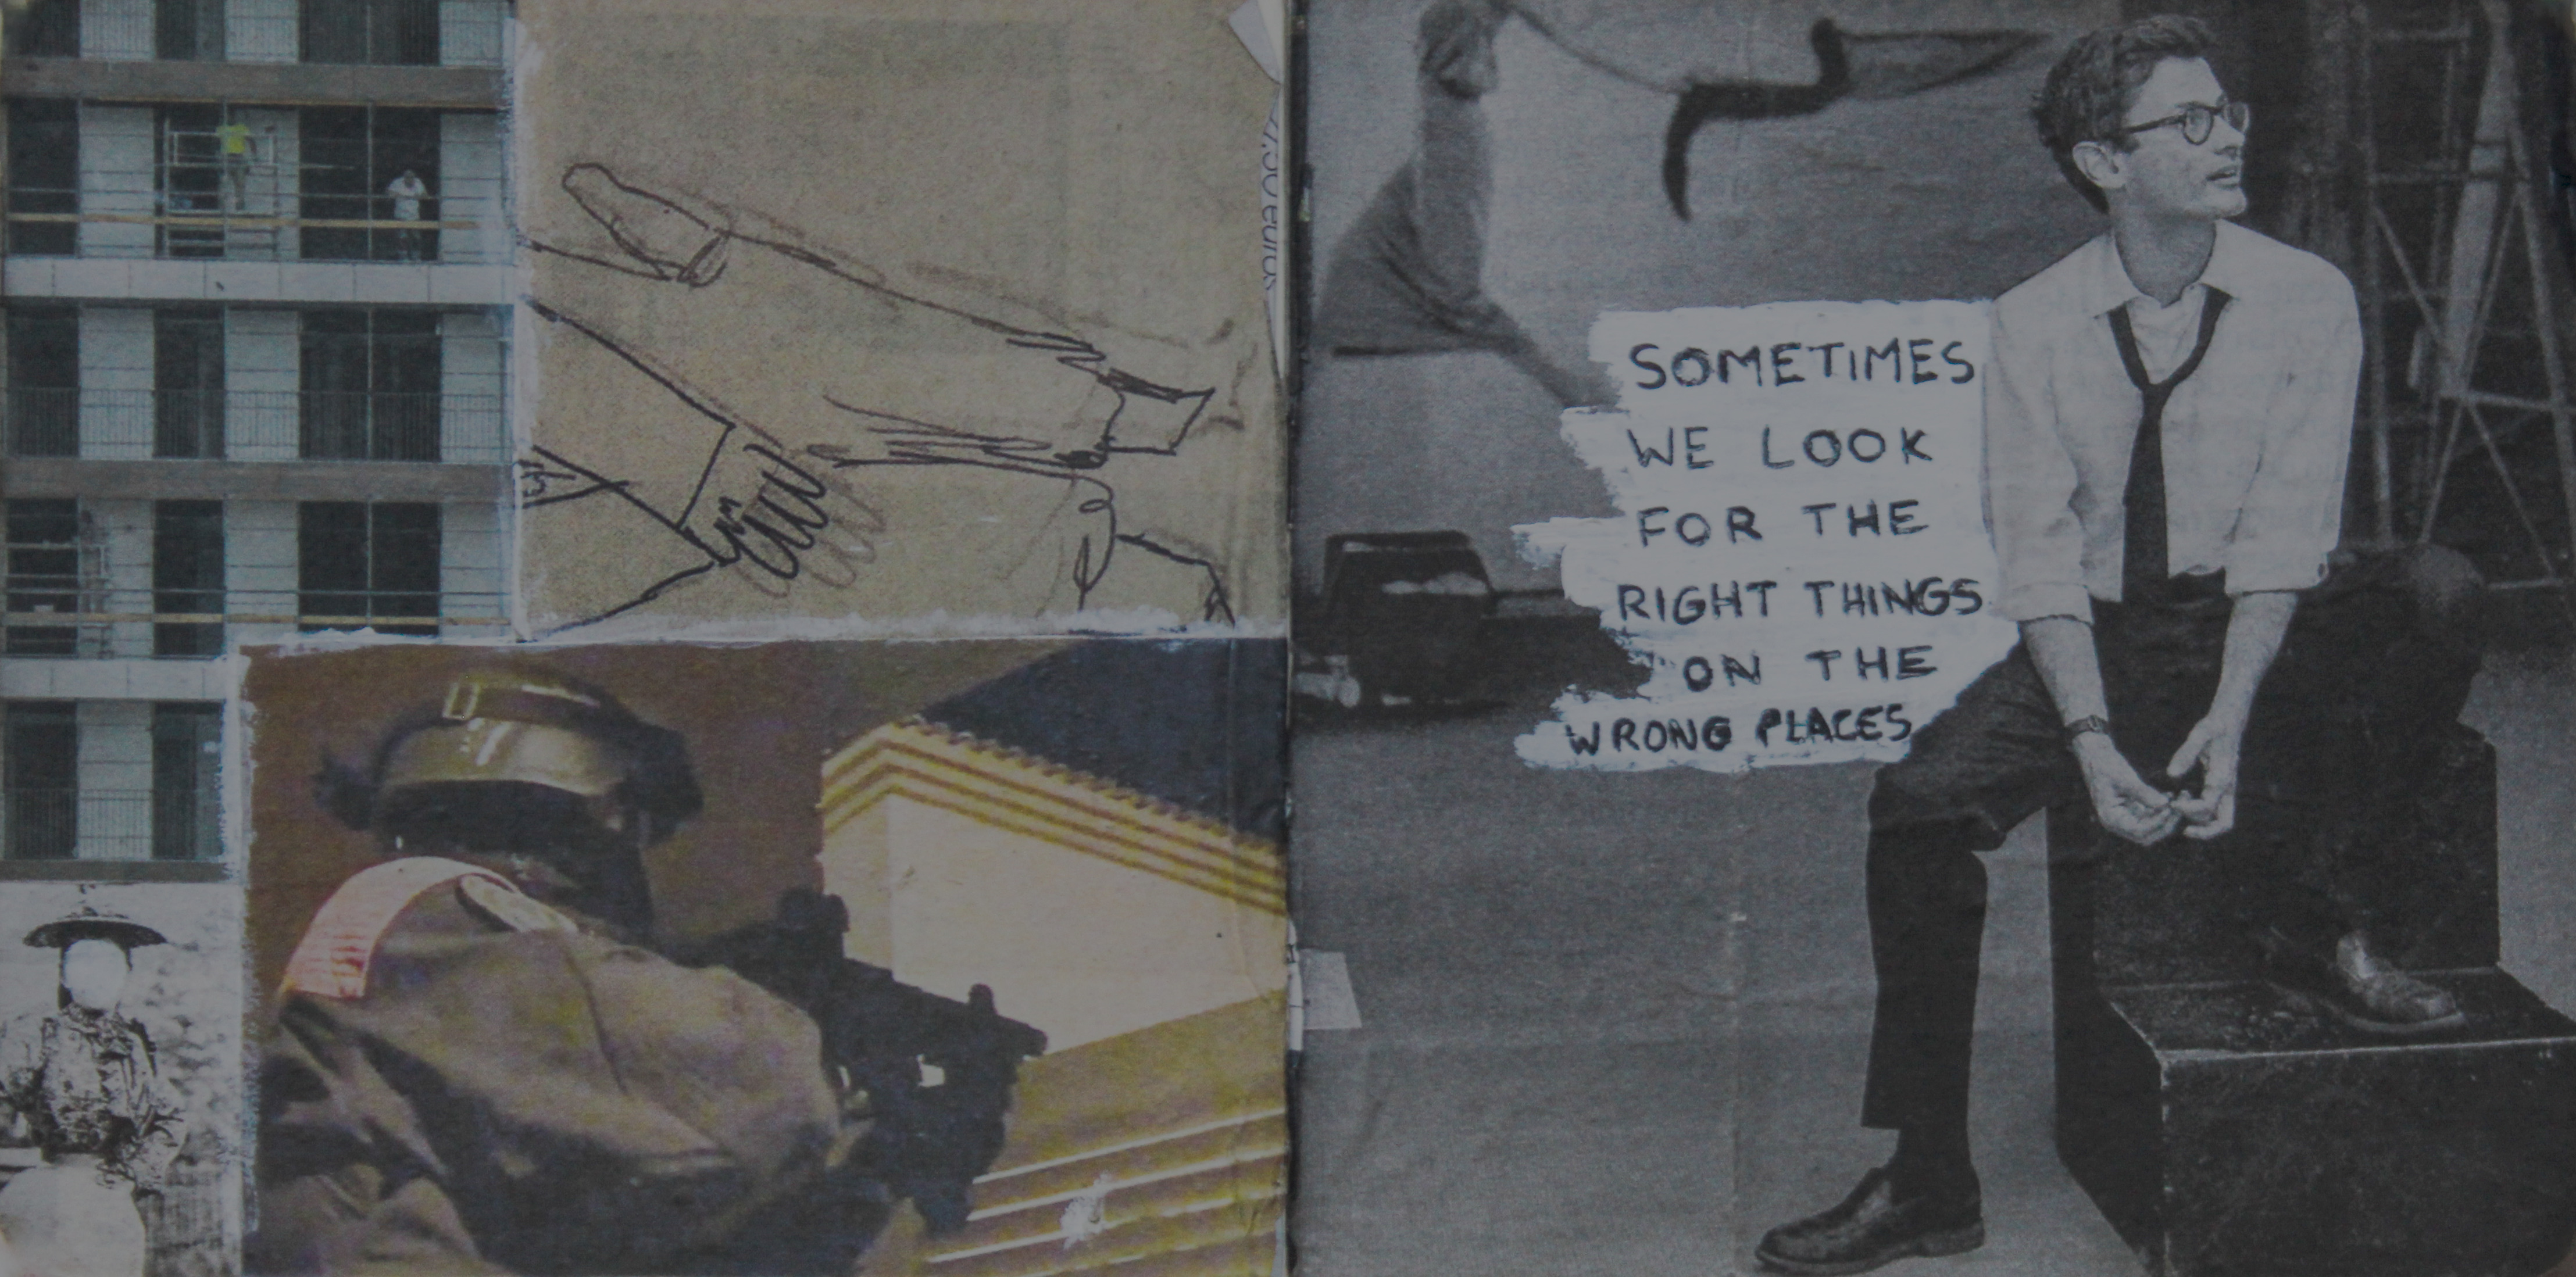 SOMETIMES
WE LOOK
FOR THE
RIGHT THINGS
ON THE
WRONG PLACES